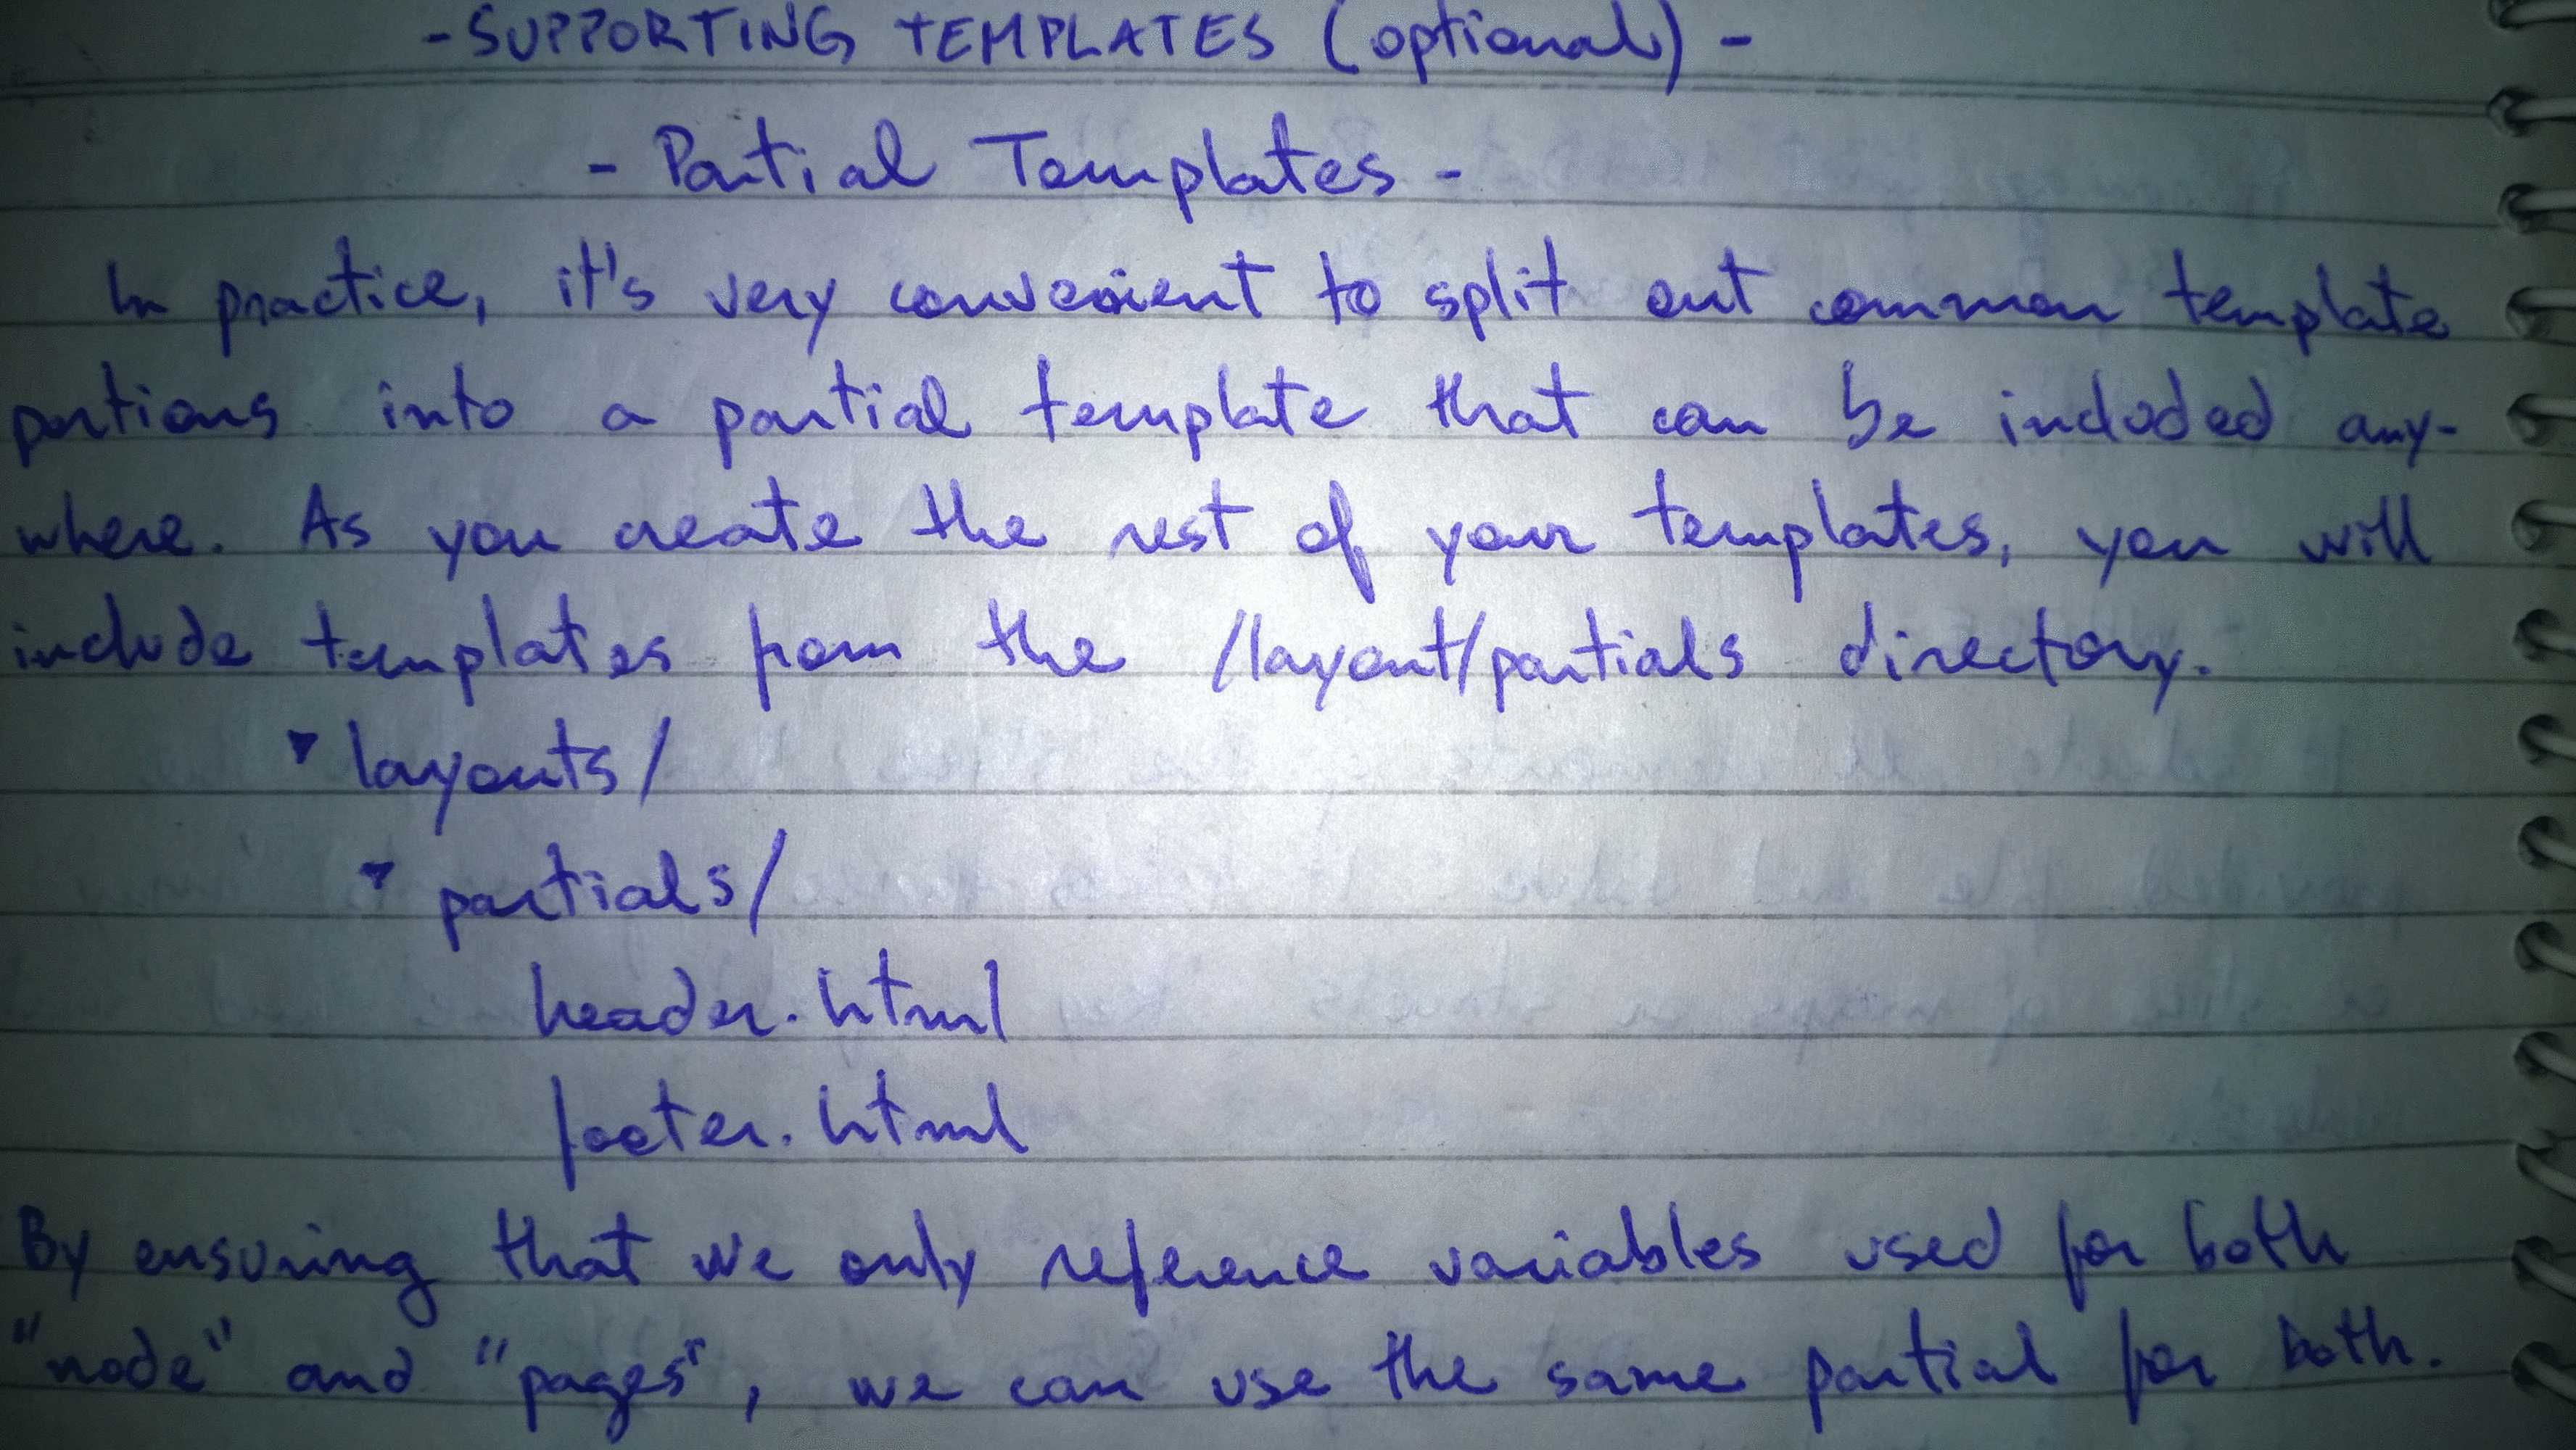 -SUPPORTING TEMPLATES (optional)-
- Partial Templates -
In practice, it's very convenient to split out common template
portions into a partial template that can be included any-
where. As you create the rest of your templates, you will
include templates from the /layout/partials directory.
▾ layouts/
▾ partials/
header.html
footer.html
By ensuring that we only reference variables used for both
"node" and "pages", we can use the same partial for both.